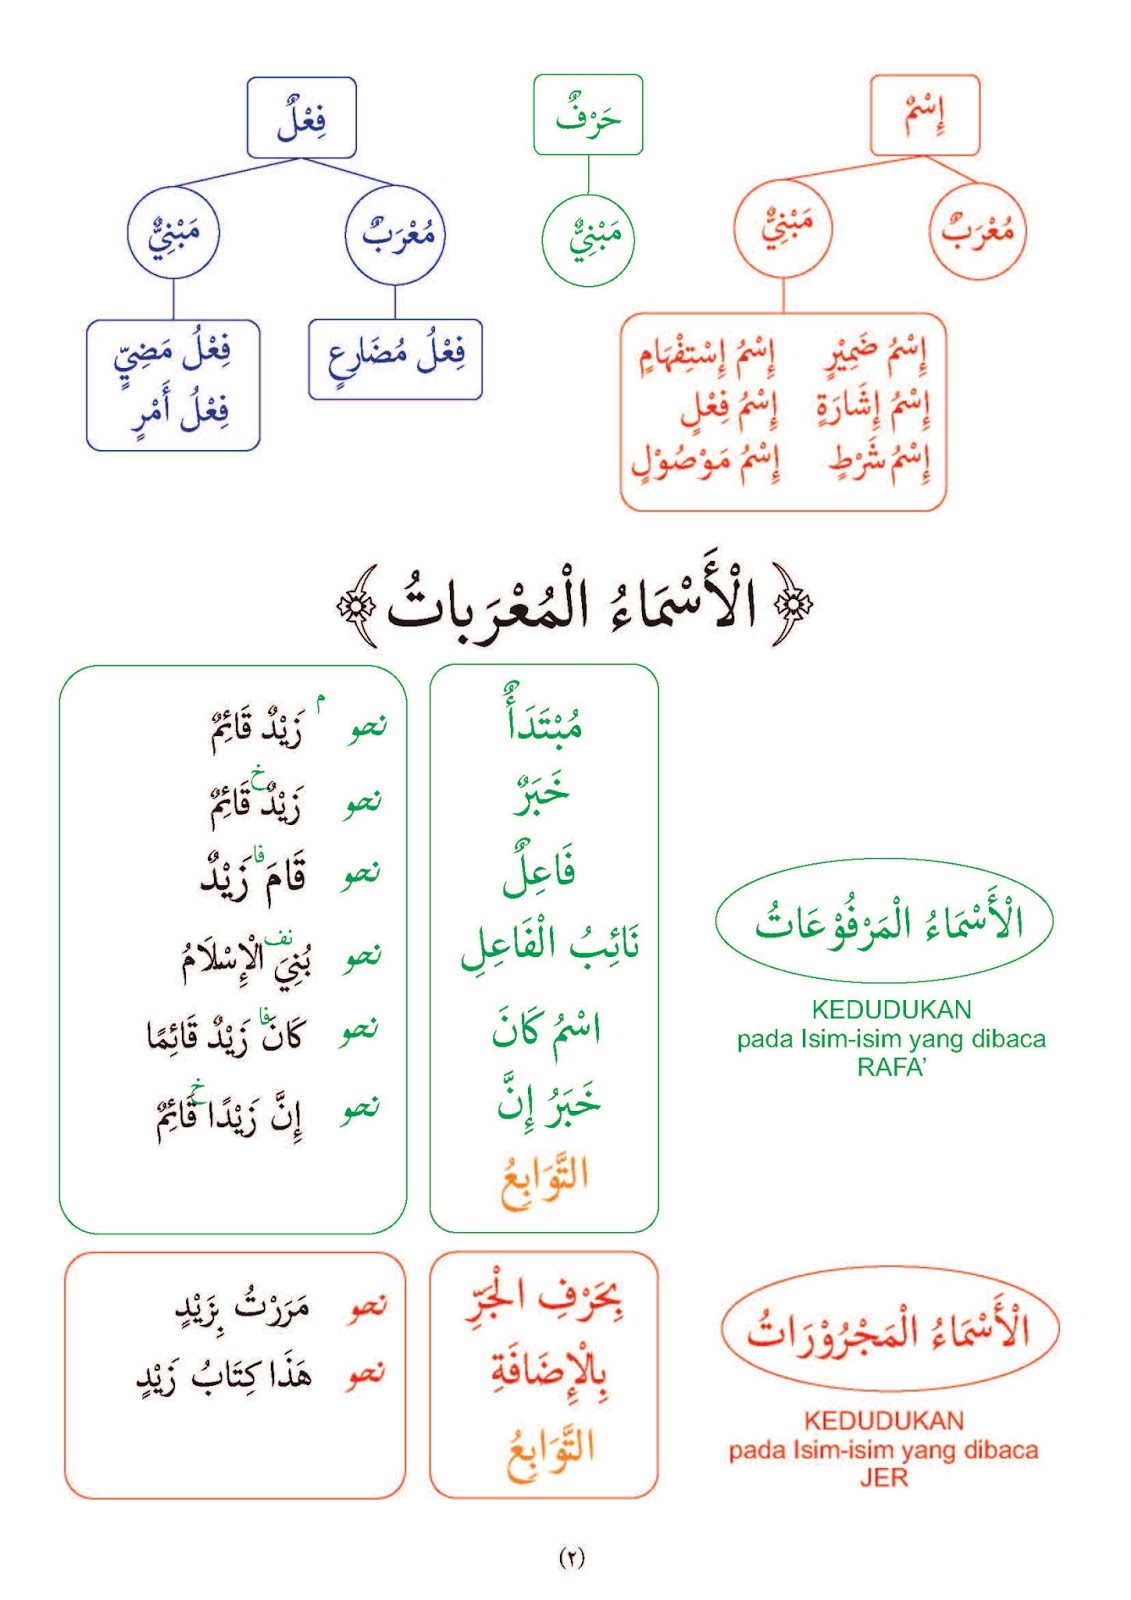 إِسْمٌ
حَرْفٌ
فِعْلٌ
مُعْرَبٌ
مَبْنِيٌّ
مَبْنِيٌّ
مُعْرَبٌ
مَبْنِيٌّ
إِسْمُ ضَمِيْرٍ إِسْمُ إِسْتِفْهَامٍ
إِسْمُ إِشَارَةٍ إِسْمُ فِعْلٍ
إِسْمُ شَرْطٍ إِسْمُ مَوْصُوْلٍ
فِعْلُ مُضَارِعٍ
فِعْلُ مَضِيٍّ
فِعْلُ أَمْرٍ
﴿ الْأَسْمَاءُ الْمُعْرَباتُ ﴾
الْأَسْمَاءُ الْمَرْفُوْعَاتُ
KEDUDUKAN
pada Isim-isim yang dibaca
RAFA’
مُبْتَدَأٌ نحو م زَيْدٌ قَائِمٌ
خَبَرٌ نحو زَيْدٌ خ قَائِمٌ
فَاعِلٌ نحو قَامَ فا زَيْدٌ
نَائِبُ الْفَاعِلِ نحو بُنِيَ نف الْإِسْلَامُ
اسْمُ كَانَ نحو كَانَ فا زَيْدٌ قَائِمًا
خَبَرُ إِنَّ نحو إِنَّ زَيْدًا خ قَائِمٌ
التَّوَابِعُ
الْأَسْمَاءُ الْمَجْرُوْرَاتُ
KEDUDUKAN
pada Isim-isim yang dibaca
JER
بِحَرْفِ الْجَرِّ نحو مَرَرْتُ بِزَيْدٍ
بِالْإِضَافَةِ نحو هَذَا كِتَابُ زَيْدٍ
التَّوَابِعُ
(٢)